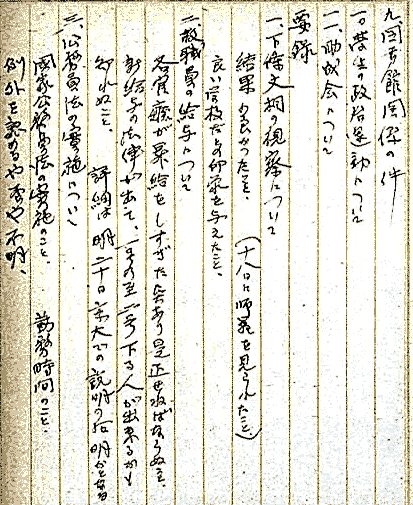 九、図書館関係の件
一〇、学生の政治運動について
一一、助成会について
要録
一、下條文相の視察について
結果よかつたこと、（十八日に師範を見られたこと）
良い学校だとの印象を与えたこと、
二、教職員の給与について
各官廳が昇給をしすぎた点あり是正せねばならぬこと、
新給与の法律が出て、一号乃至二号下る人が出来るかも
知れぬこと、詳細は明二十日京大での説明の後明かとなる
三、公務員法の実施について
国家公務員法の実施のこと、勤務時間のこと、
例外を認めるや否や不明、